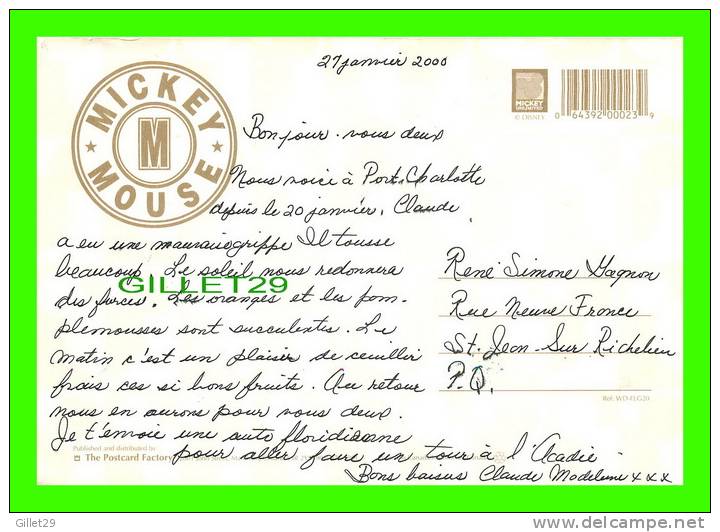 27 janvier 2000
MICKEY
M
MOUSE
MICKEY
UNLIMITED
© DISNEY
0 64392 00023 9
Bonjour vous deux
Nous voici à Port-Charlotte
depuis le 20 janvier. Claude
a eu une mauvaise grippe Il tousse
beaucoup. Le soleil nous redonnera
des forces. Les oranges et les pom-
plemousses sont succulentes. Le
matin c'est un plaisir de ceuillir
frais ces si bons fruits. Au retour
nous en aurons pour vous deux.
Je t'envoie une auto floridienne
pour aller faire un tour à l'Acadie
Bons baisers Claude Madeleine x x x
René Simone Gagnon
Rue Neuve France
St. Jean-Sur Richelieu
P.Q.
Réf. WD-FLG20
Published and distributed by
The Postcard Factory
GILLET29
Gillet29
delcampe.net